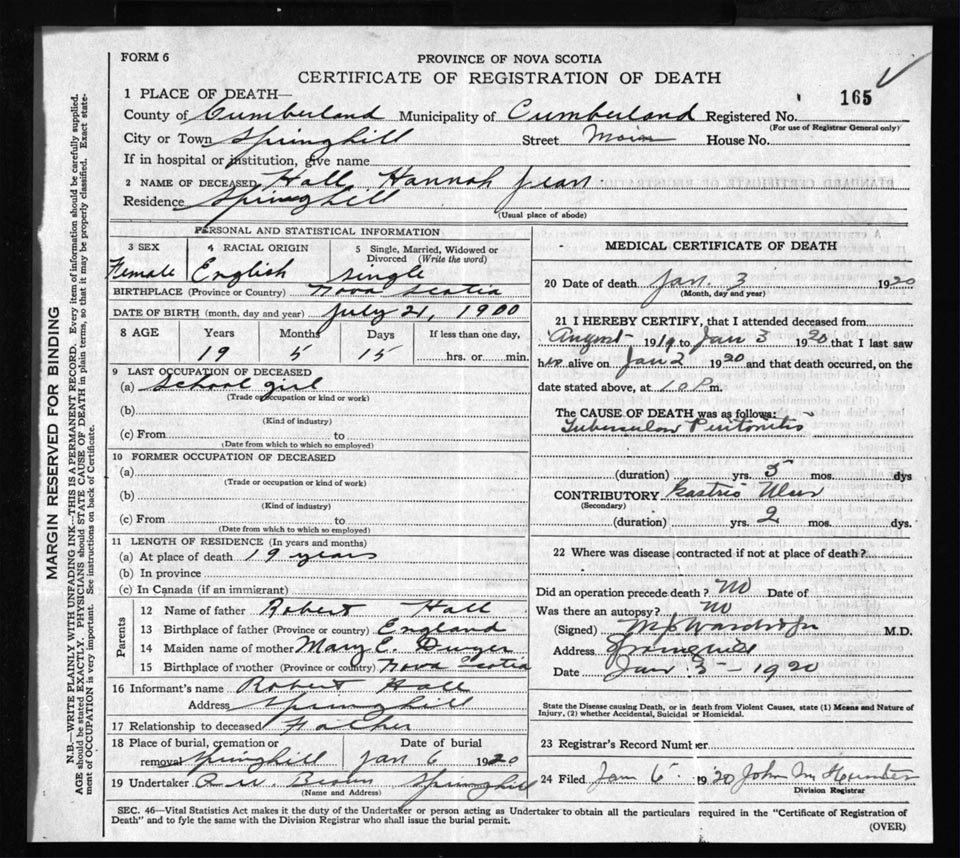 FORM 6
PROVINCE OF NOVA SCOTIA
CERTIFICATE OF REGISTRATION OF DEATH
165
1 PLACE OF DEATH—
County of Cumberland Municipality of Cumberland Registered No.
(For use of Registrar General only)
City or Town Springhill Street Main House No.
If in hospital or institution, give name
2 NAME OF DECEASED Hall Hannah Jean
Residence Springhill
(Usual place of abode)
PERSONAL AND STATISTICAL INFORMATION
3 SEX 4 RACIAL ORIGIN 5 Single, Married, Widowed or Divorced (Write the word)
Female English single
BIRTHPLACE (Province or Country) Nova Scotia
DATE OF BIRTH (month, day and year) July 21, 1900
8 AGE Years Months Days If less than one day,
19 5 15 hrs. or min.
9 LAST OCCUPATION OF DECEASED
(a) School girl
(Trade or occupation or kind or work)
(b)
(Kind of industry)
(c) From to
(Date from which to which so employed)
10 FORMER OCCUPATION OF DECEASED
(a)
(Trade or occupation or kind or work)
(b)
(Kind of industry)
(c) From to
(Date from which to which so employed)
11 LENGTH OF RESIDENCE (In years and months)
(a) At place of death 19 years
(b) In province
(c) In Canada (if an immigrant)
Parents
12 Name of father Robert Hall
13 Birthplace of father (Province or country) England
14 Maiden name of mother Mary E. Dwyer
15 Birthplace of mother (Province or country) Nova Scotia
16 Informant's name Robert Hall
Address Springhill
17 Relationship to deceased Father
18 Place of burial, cremation or Date of burial
removal Springhill Jan 6 1920
19 Undertaker Brown Springhill
(Name and Address)
MEDICAL CERTIFICATE OF DEATH
20 Date of death Jan. 3 1920
(Month, day and year)
21 I HEREBY CERTIFY, that I attended deceased from
August 1919 to Jan 3 1920 that I last saw
her alive on Jan 2 1920 and that death occurred, on the
date stated above, at 10 P m.
The CAUSE OF DEATH was as follows:
Tubercular Peritonitis
(duration) yrs. 5 mos. dys
CONTRIBUTORY Gastric Ulcer
(Secondary)
(duration) yrs. 2 mos. dys.
22 Where was disease contracted if not at place of death?
Did an operation precede death? No Date of
Was there an autopsy? No
(Signed) Wardrope M.D.
Address Springhill
Date Jan 3 – 1920
State the Disease causing Death, or in death from Violent Causes, state (1) Means and Nature of
Injury, (2) whether Accidental, Suicidal or Homicidal.
23 Registrar's Record Number
24 Filed Jan 6 1920 John M Hunter
Division Registrar
SEC. 46—Vital Statistics Act makes it the duty of the Undertaker or person acting as Undertaker to obtain all the particulars required in the "Certificate of Registration of
Death" and to fyle the same with the Division Registrar who shall issue the burial permit.
(OVER)
MARGIN RESERVED FOR BINDING
N.B.—WRITE PLAINLY WITH UNFADING INK—THIS IS A PERMANENT RECORD. Every item of information should be carefully supplied.
AGE should be stated EXACTLY. PHYSICIANS should STATE CAUSE OF DEATH in plain terms, so that it may be properly classified. Exact state-
ment of OCCUPATION is very important. See instructions on back of Certificate.